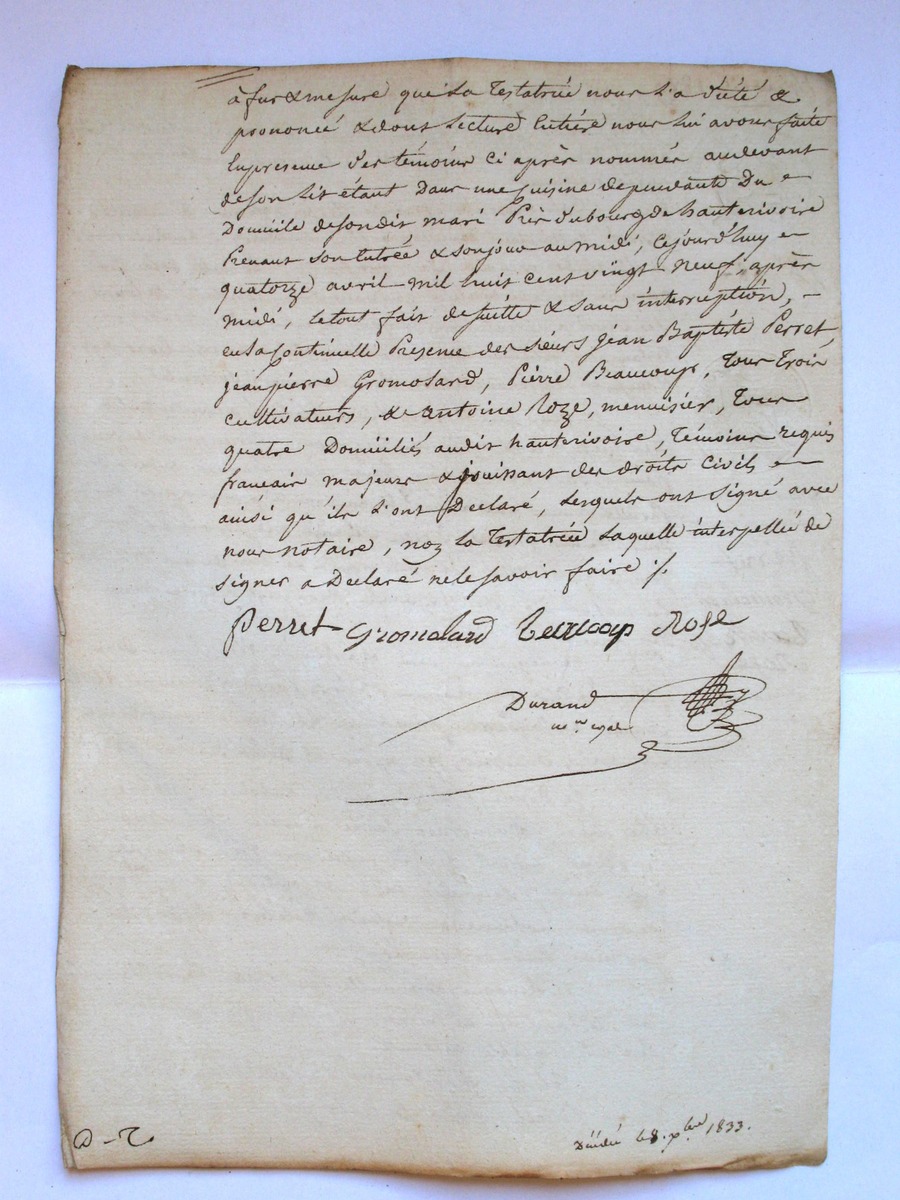 à fur & mesure que la Testatrice nous l'a dicté &
prononcé & dont lecture Entière nous lui avons faite
En presence des témoins Ci après nommés au devant
de son lit étant Dans une Cuisine dependante Du =
Domicile de son dit mari Près du bourg de hauterivoire
Prenant son Entrée & son jour au midi, Cejourd'huy =
quatorze avril mil huit cent vingt-neuf, après
midi, le tout fait de suitte & sans interruption, -
en la Continuelle Presence des sieurs jean Baptiste Perret,
jean pierre Gromolard, Pierre Beaucoup, Tous Trois
cultivateurs, & antoine Roze, menuisier, Tous
quatre Domiciliés audit hauterivoire, Témoins requis
francais majeurs & jouissant des droits Civils =
ainsi qu'ils l'ont Declaré, Lesquels ont signé avec
nous notaire, non la Testatrice Laquelle interpellée de
signer a Declaré ne le savoir faire ./.
Perret Gromolard Beaucoup Rose
Durand
Décédée le 8. xbre 1833.